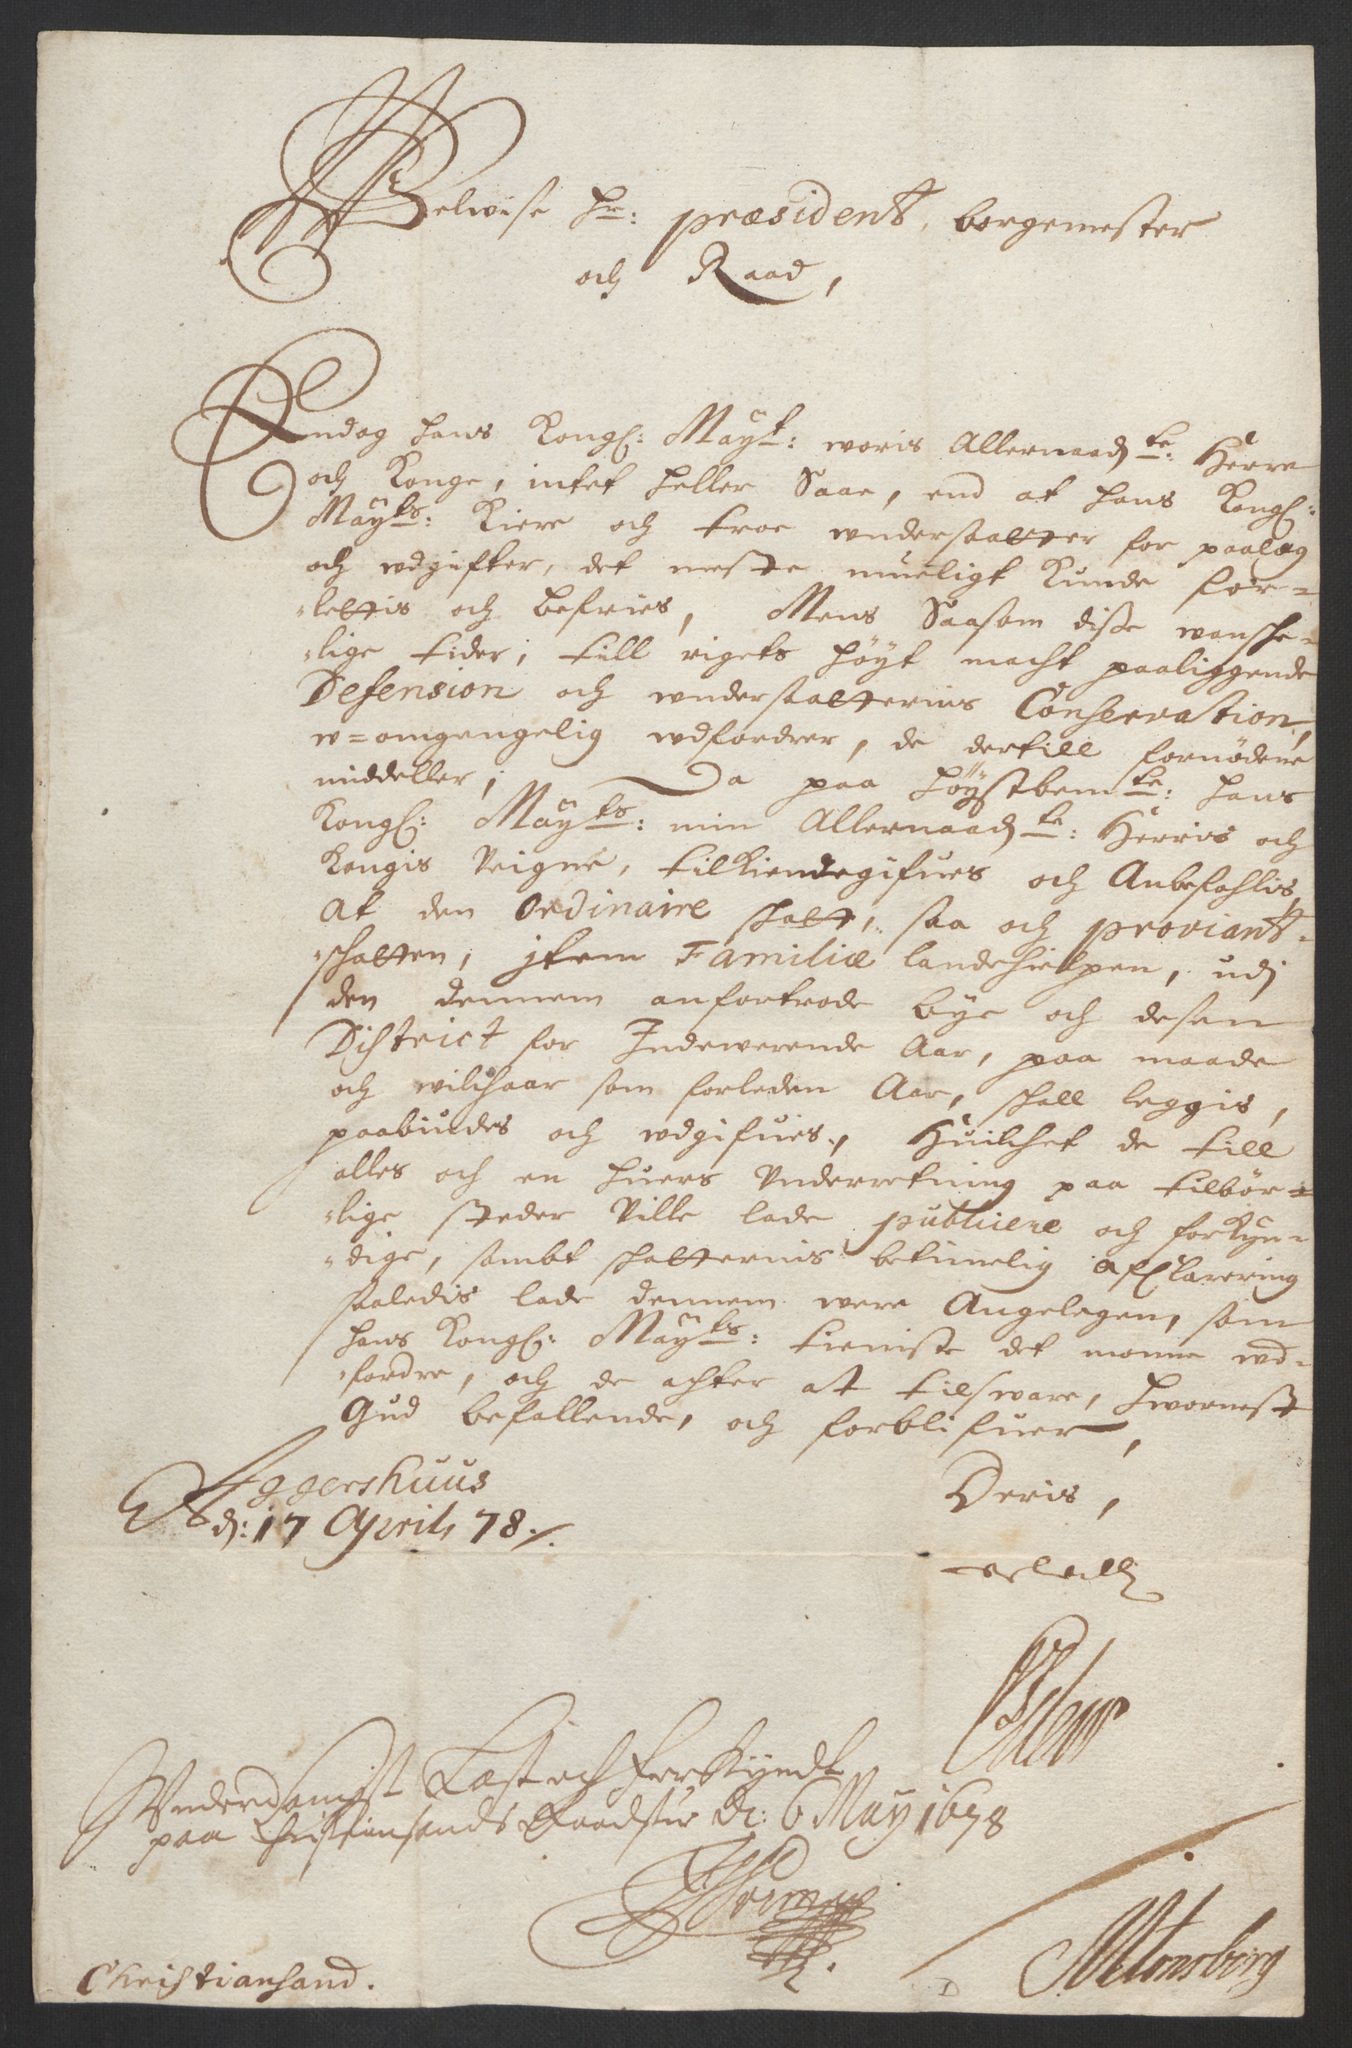 Velwise Hr: præsident, borgemester
och Raad,
Endog hans Kongl: Mayt: woris Allernaadte: Herre
och Konge, intet heller Saae, end at hans Kongl:
Mayts: Kiere och troe wndersaatter for paalæg
och wdgifter, det meste mueligt Kunde for=
lettis och befries, Mens Saasom disse wansche=
lige tider, till rigets høyt macht paaliggende
Defension och wndersaatternis Conservation,
w=omgengelig wdfordrer, de dertill fornødene
middeller; Da paa høystbemte: hans
Kongl: Mayts: min Allernaadte: Herris och
Kongis Veigne, tilkiendegifues och Anbefahlis,
At den Ordinaire skatt, saa och proviant=
schatten, jtem Familiæ landehielpen, udj
den dennem anfortrode bye och desen
District for Indewerende Aar, paa maade
och wilchaar som forleden Aar, schall leggis,
paabindes och wdgifues, Huilchet de till
alles och en huers Vnderretning paa tilbør=
lige steder Ville lade publicere och forkyn=
dige, sambt schatternis betimelig afclarering
saaledis lade dennem were Angelegen, som
hans Kongl: Mayts: tieniste det monne wd=
fordre, och de achter at tilsware, hwornest
Gud befallende, och forblifuer,
Aggershuus
d: 17 Aprili 78./.
Deris,
Wnderdanigst Læst och forkyndt
paa Christiansands Raadstue d: 6 May 1678
MTonsberg
Christiansand.